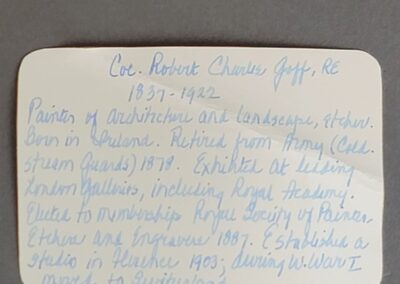 Col. Robert Charles Goff, RE
1837-1922
Painter of architecture and landscape, etcher.
Born in Ireland. Retired from Army (Cold-
stream Guards) 1878. Exhibited at leading
London galleries, including Royal Academy.
Elected to membership Royal Society of Painter-
Etchers and Engravers 1887. Established a
studio in Florence 1903; during W. War I
moved to Switzerland